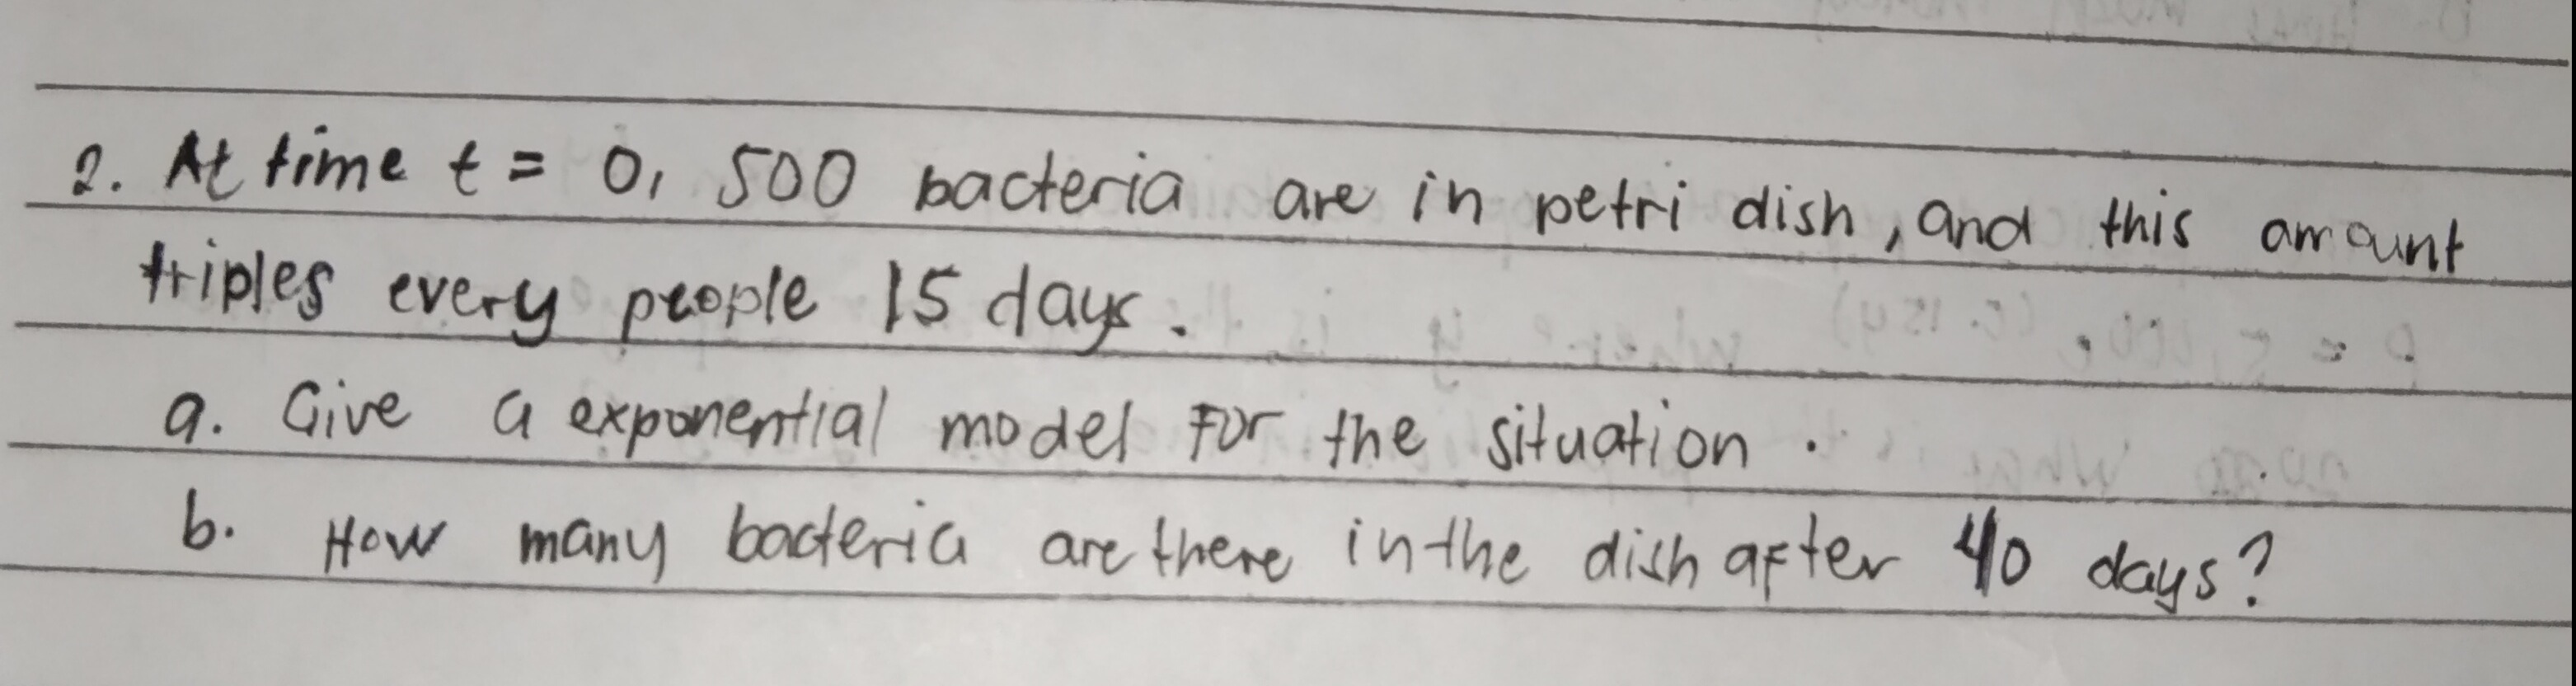 2. At time t = 0, 500 bacteria are in petri dish, and this amount
triples every people 15 days.
a. Give a exponential model For the situation.
b. How many bacteria are there in the dish after 40 days?